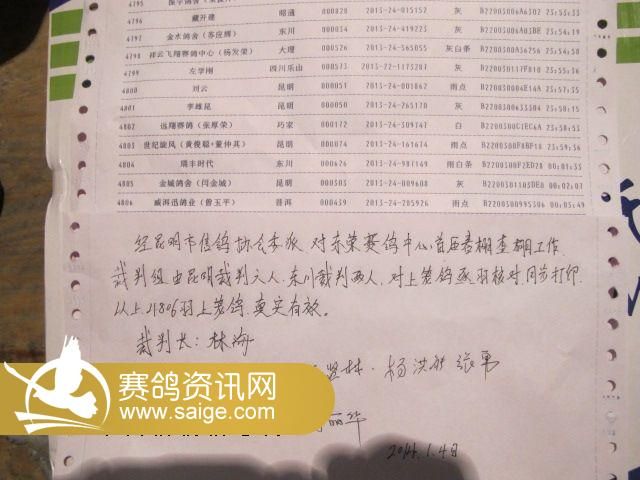 4795
4796 戴开建 昭通 000828 2013-24-015152 灰 B22003006A6302 23:53:33
4797 金水鸽舍(苏应辉) 东川 000034 2013-24-419223 灰 23:54:19
4798 祥云飞翔赛鸽中心(杨发荣) 大理 000526 2013-24-565055 灰白条 23:54:58
4799 左学刚 四川乐山 000573 2013-22-1173287 灰 B220030117F810 23:55:36
4800 刘云 昆明 000051 2013-24-001862 雨点 B220030004E14A 23:57:35
4801 李雄昆 昆明 000050 2013-24-265170 灰 B2200300633304 23:58:15
4802 远翔赛鸽(张厚荣) 巧家 000172 2013-24-309747 白 B220030OC7EC6A 23:58:53
4803 世纪旋风(黄俊聪+董仲其) 昆明 000074 2013-24-161674 雨点 23:59:36
4804 瑞丰时代 东川 000626 2013-24-987149 雨白条 B2200300F2ED28 00:01:33
4805 金城鸽舍(闫金城) 昆明 000303 2013-24-009608 灰 B2200301103DE8 00:02:07
4806 威洱迅鸽业(曾玉平) 普洱 000439 2013-24-285965 雨点 B2200300995306 00:03:49
经昆明市信鸽协会委派 对东荣赛鸽中心首届春棚查棚工作
裁判组由昆明裁判六人,东川裁判两人,对上笼鸽逐羽核对,同步打印
以上4806羽上笼鸽真实有效。
裁判长:林瀚
林·杨洪 张勇
丽华
2014.1.4日
赛鸽资讯网
www.saige.com